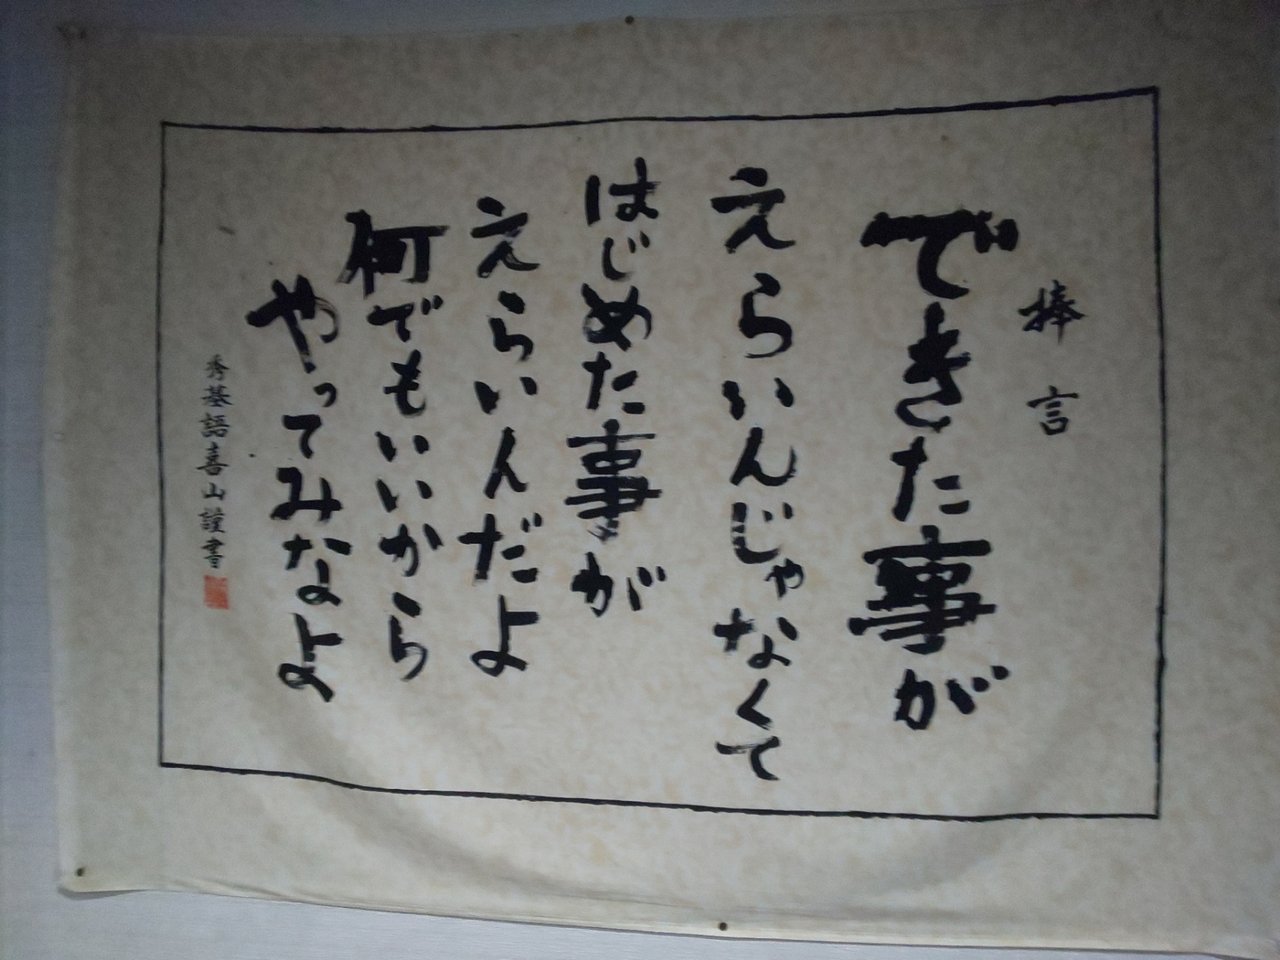 捧言
できた事が
えらいんじゃなくて
はじめた事が
えらいんだよ
何でもいいから
やってみなよ
秀基語喜山謹書